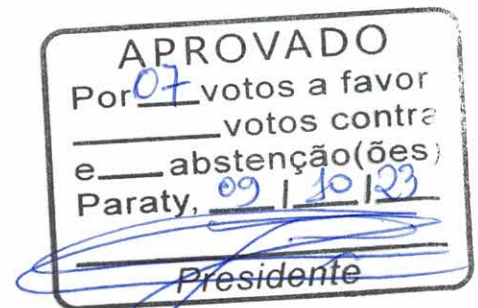 APROVADO
Por 07 votos a favor
votos contra
e abstenção(ões)
Paraty, 09 / 10 / 23
Presidente